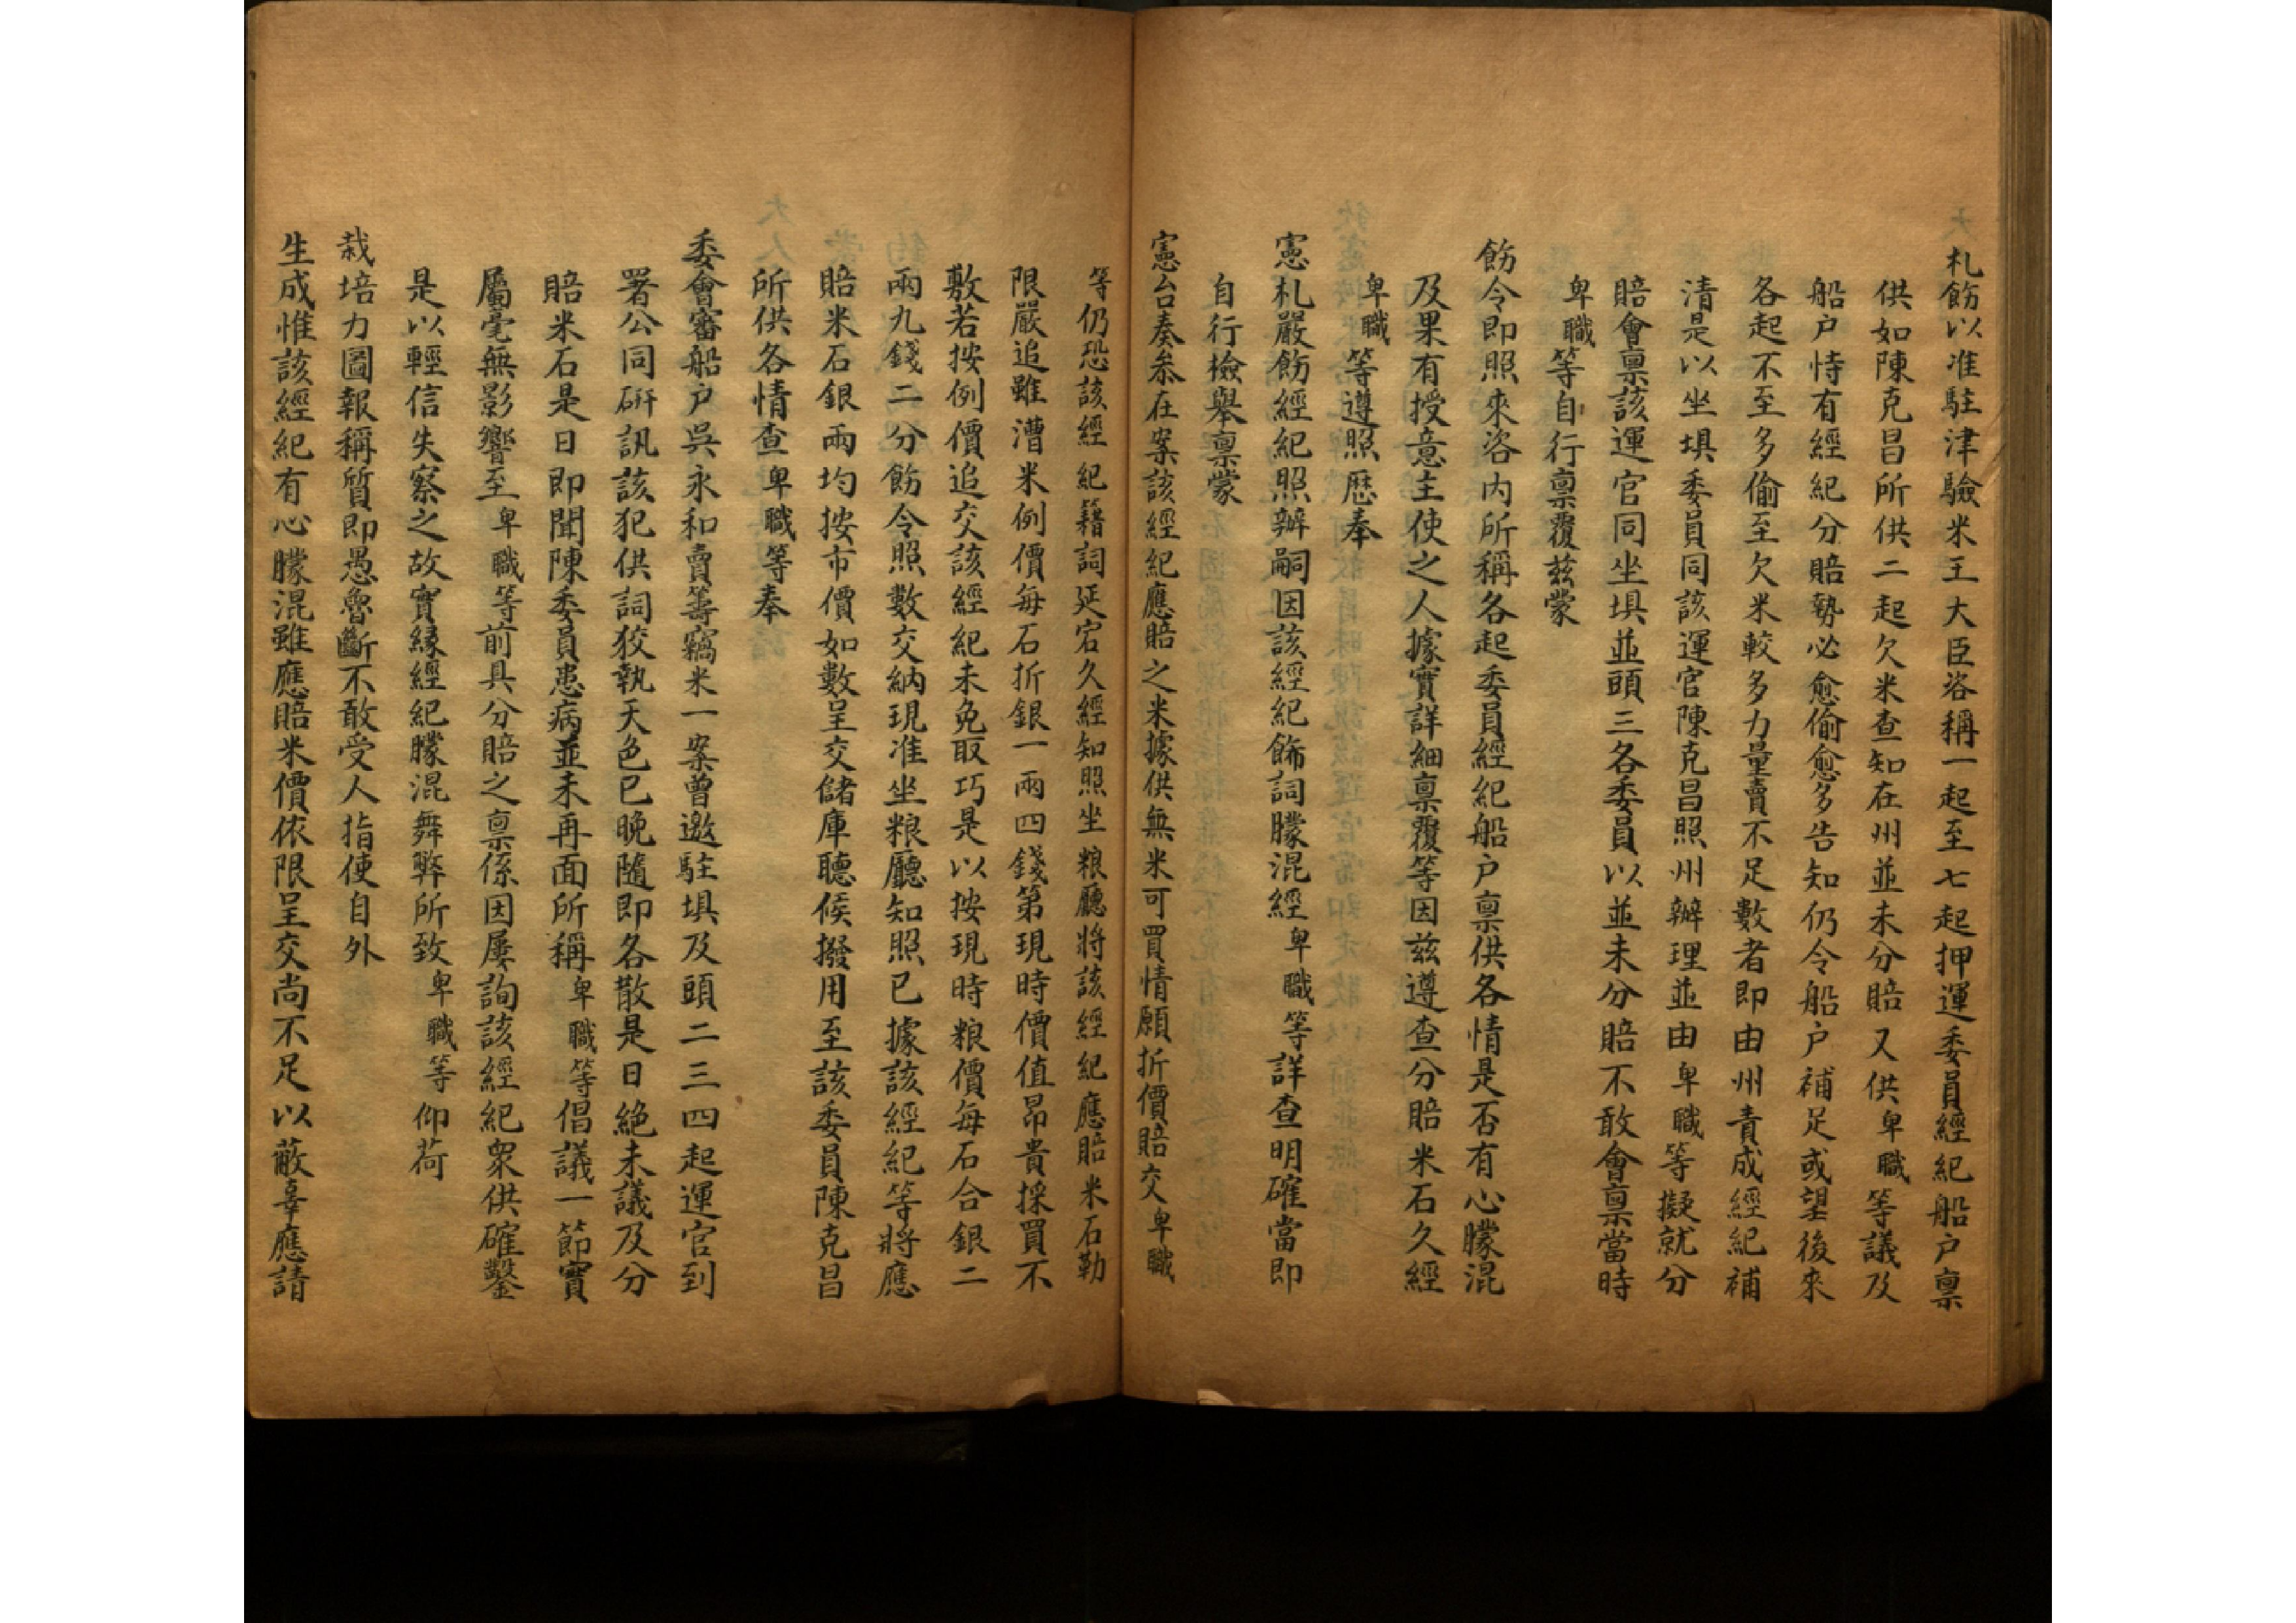 札飭以准駐津驗米王大臣咨稱一起至七起押運委員經紀船户禀
供如陳克昌所供二起欠米查知在州並未分賠又供卑職等議及
船户恃有經紀分賠勢必愈偷愈多告知仍令船户補足或望後來
各起不至多偷至欠米較多力量賣不足數者即由州責成經紀補
清是以坐塡委員同該運官陳克昌照州辦理並由卑職等擬就分
賠會禀該運官同坐塡並頭三各委員以並未分賠不敢會禀當時
卑職等自行禀覆兹蒙
飭令即照來咨内所稱各起委員經紀船户禀供各情是否有心朦混
及果有授意主使之人據實詳細禀覆等因兹遵查分賠米石久經
卑職等遵照歷奉
憲札嚴飭經紀照辦嗣因該經紀飾詞朦混經卑職等詳查明確當即
自行檢舉禀蒙
憲台奏叅在案該經紀應賠之米據供無米可買情願折價賠交卑職
等仍恐該經紀藉詞延宕久經知照坐粮廳將該經紀應賠米石勒
限嚴追雖漕米例價每石折銀一兩四錢第現時價值昂貴採買不
敷若按例價追交該經紀未免取巧是以按現時粮價每石合銀二
兩九錢二分飭令照數交納現准坐粮廳知照已據該經紀等將應
賠米石銀兩均按市價如數呈交儲庫聽候撥用至該委員陳克昌
所供各情查卑職等奉
委會審船户吳永和賣籌竊米一案曾邀駐塡及頭二三四起運官到
署公同研訊該犯供詞狡執天色已晚隨即各散是日絶未議及分
賠米石是日即聞陳委員患病並未再面所稱卑職等倡議一節實
屬毫無影響至卑職等前具分賠之禀係因屢詢該經紀衆供確鑿
是以輕信失察之故實緣經紀朦混舞弊所致卑職等仰荷
栽培力圖報稱質即愚魯斷不敢受人指使自外
生成惟該經紀有心朦混雖應賠米價依限呈交尚不足以蔽辜應請